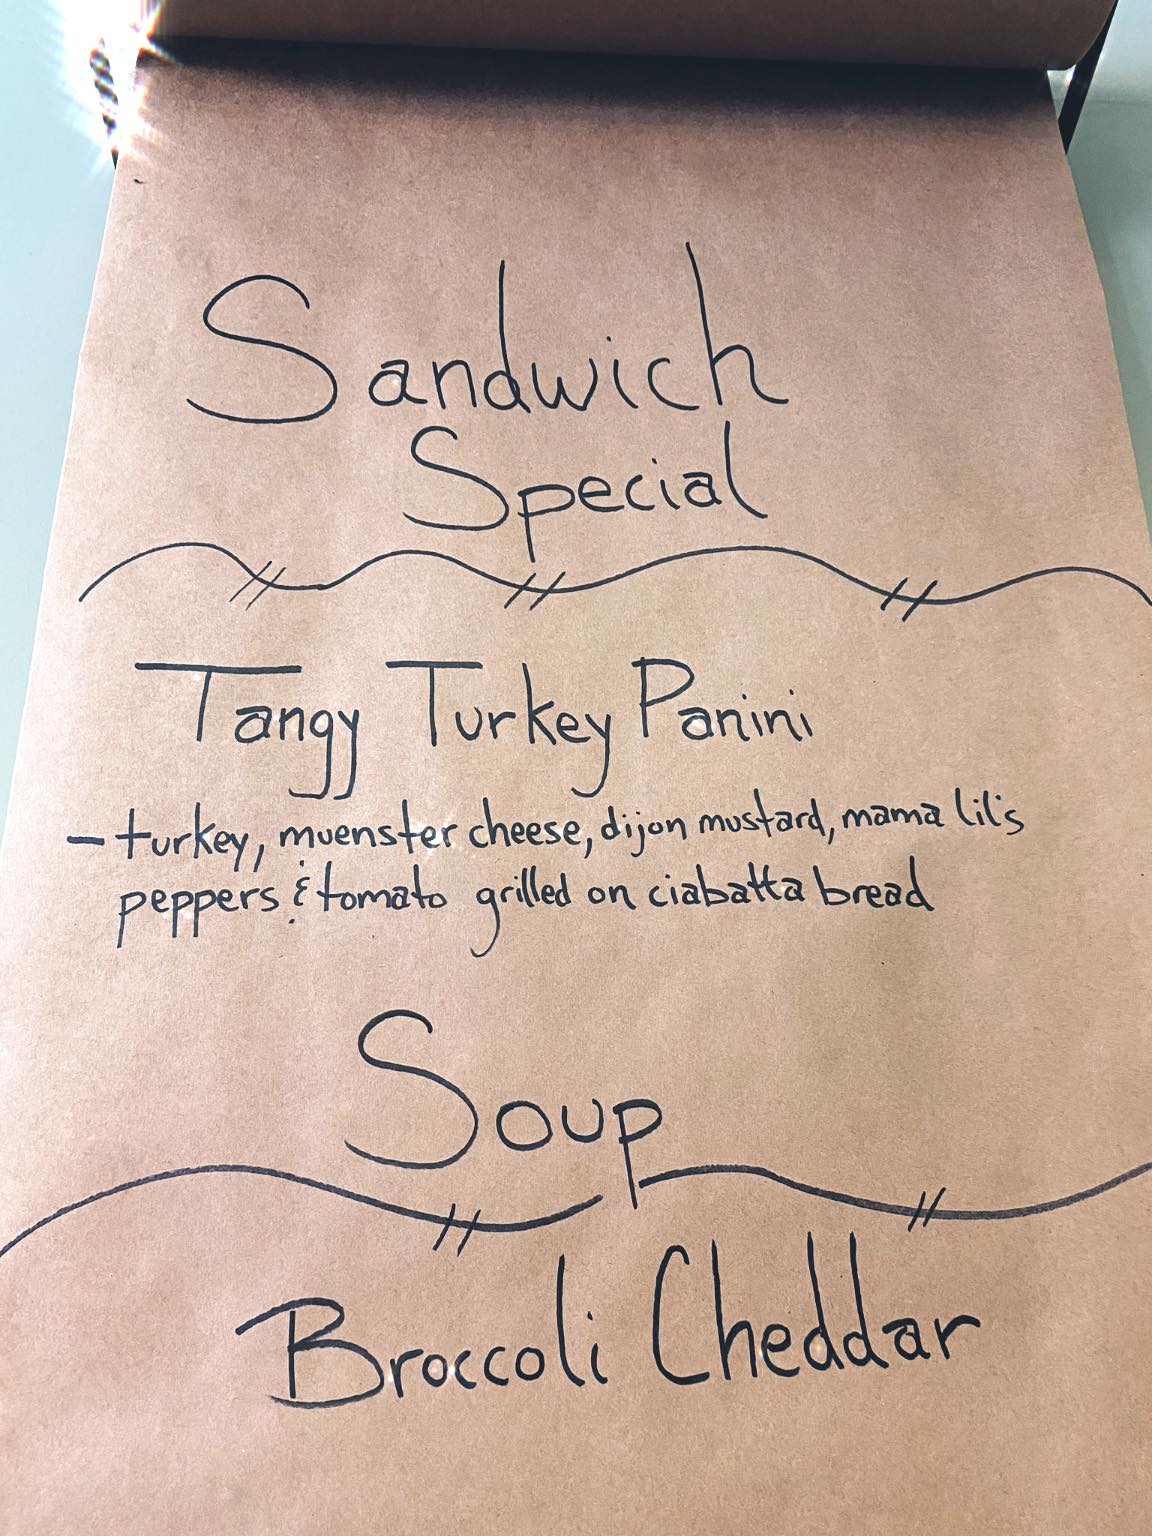 Sandwich
Special
Tangy Turkey Panini
- turkey, muenster cheese, dijon mustard, mama lil's
peppers & tomato grilled on ciabatta bread
Soup
Broccoli Cheddar